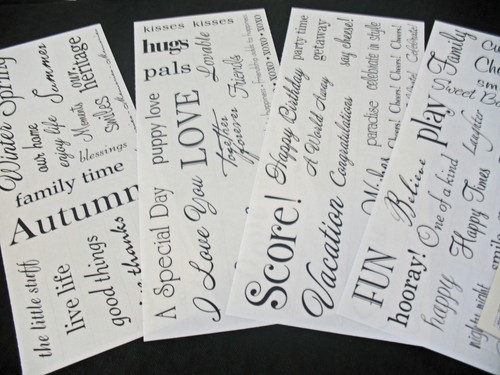 Winter Spring
our home
enjoy life
Summer
Moments
our heritage
smiles
blessings
family time
Autumn
the little stuff
live life
good things
thanks
kisses kisses
hugs
pals
Lovable
puppy love
LOVE
Together forever
Friends
A Special Day
I Love You
xoxo•xoxo•xoxo
party time
getaway
say cheese!
Happy Birthday
A World Away
celebrate in style
Cheers! Cheers! Cheers!
paradise
celebrate
Congratulations
Score!
Vacation
Family
play
Sweet
Believe
One of a kind
Laughter
FUN
hooray!
Happy Times
happy
night night
smile